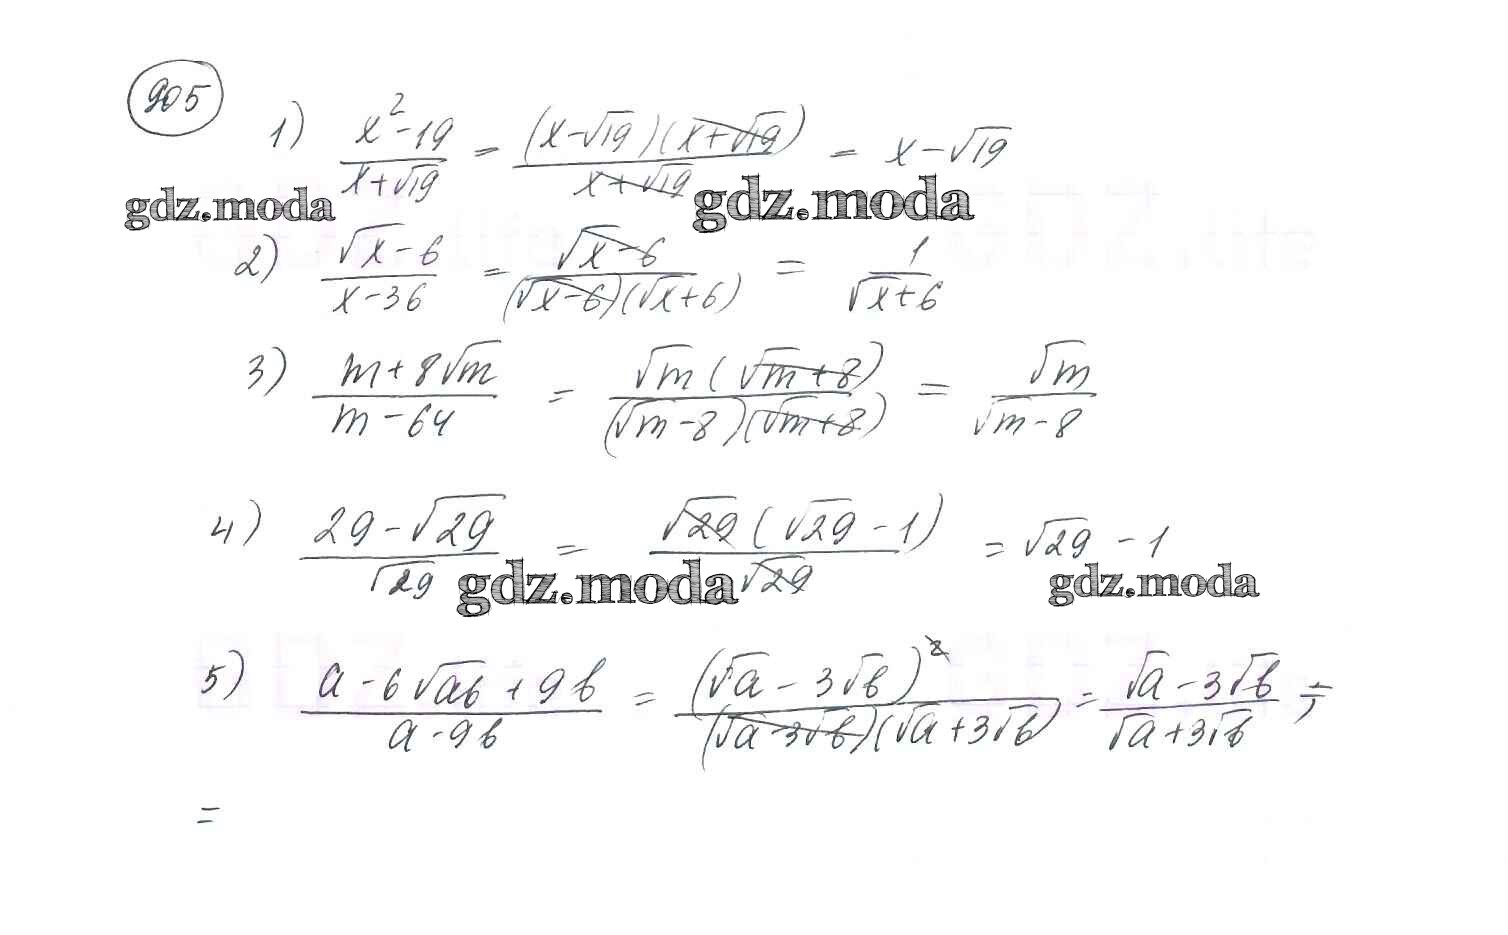 905
1) (x² - 19)/(x + √19) = ((x - √19)(x + √19))/(x + √19) = x - √19
gdz.moda gdz.moda
2) (√x - 6)/(x - 36) = (√x - 6)/((√x - 6)(√x + 6)) = 1/(√x + 6)
3) (m + 8√m)/(m - 64) = (√m(√m + 8))/((√m - 8)(√m + 8)) = √m/(√m - 8)
4) (29 - √29)/√29 = (√29(√29 - 1))/√29 = √29 - 1
gdz.moda gdz.moda
5) (a - 6√ab + 9b)/(a - 9b) = (√a - 3√b)²/((√a - 3√b)(√a + 3√b)) = (√a - 3√b)/(√a + 3√b)
=